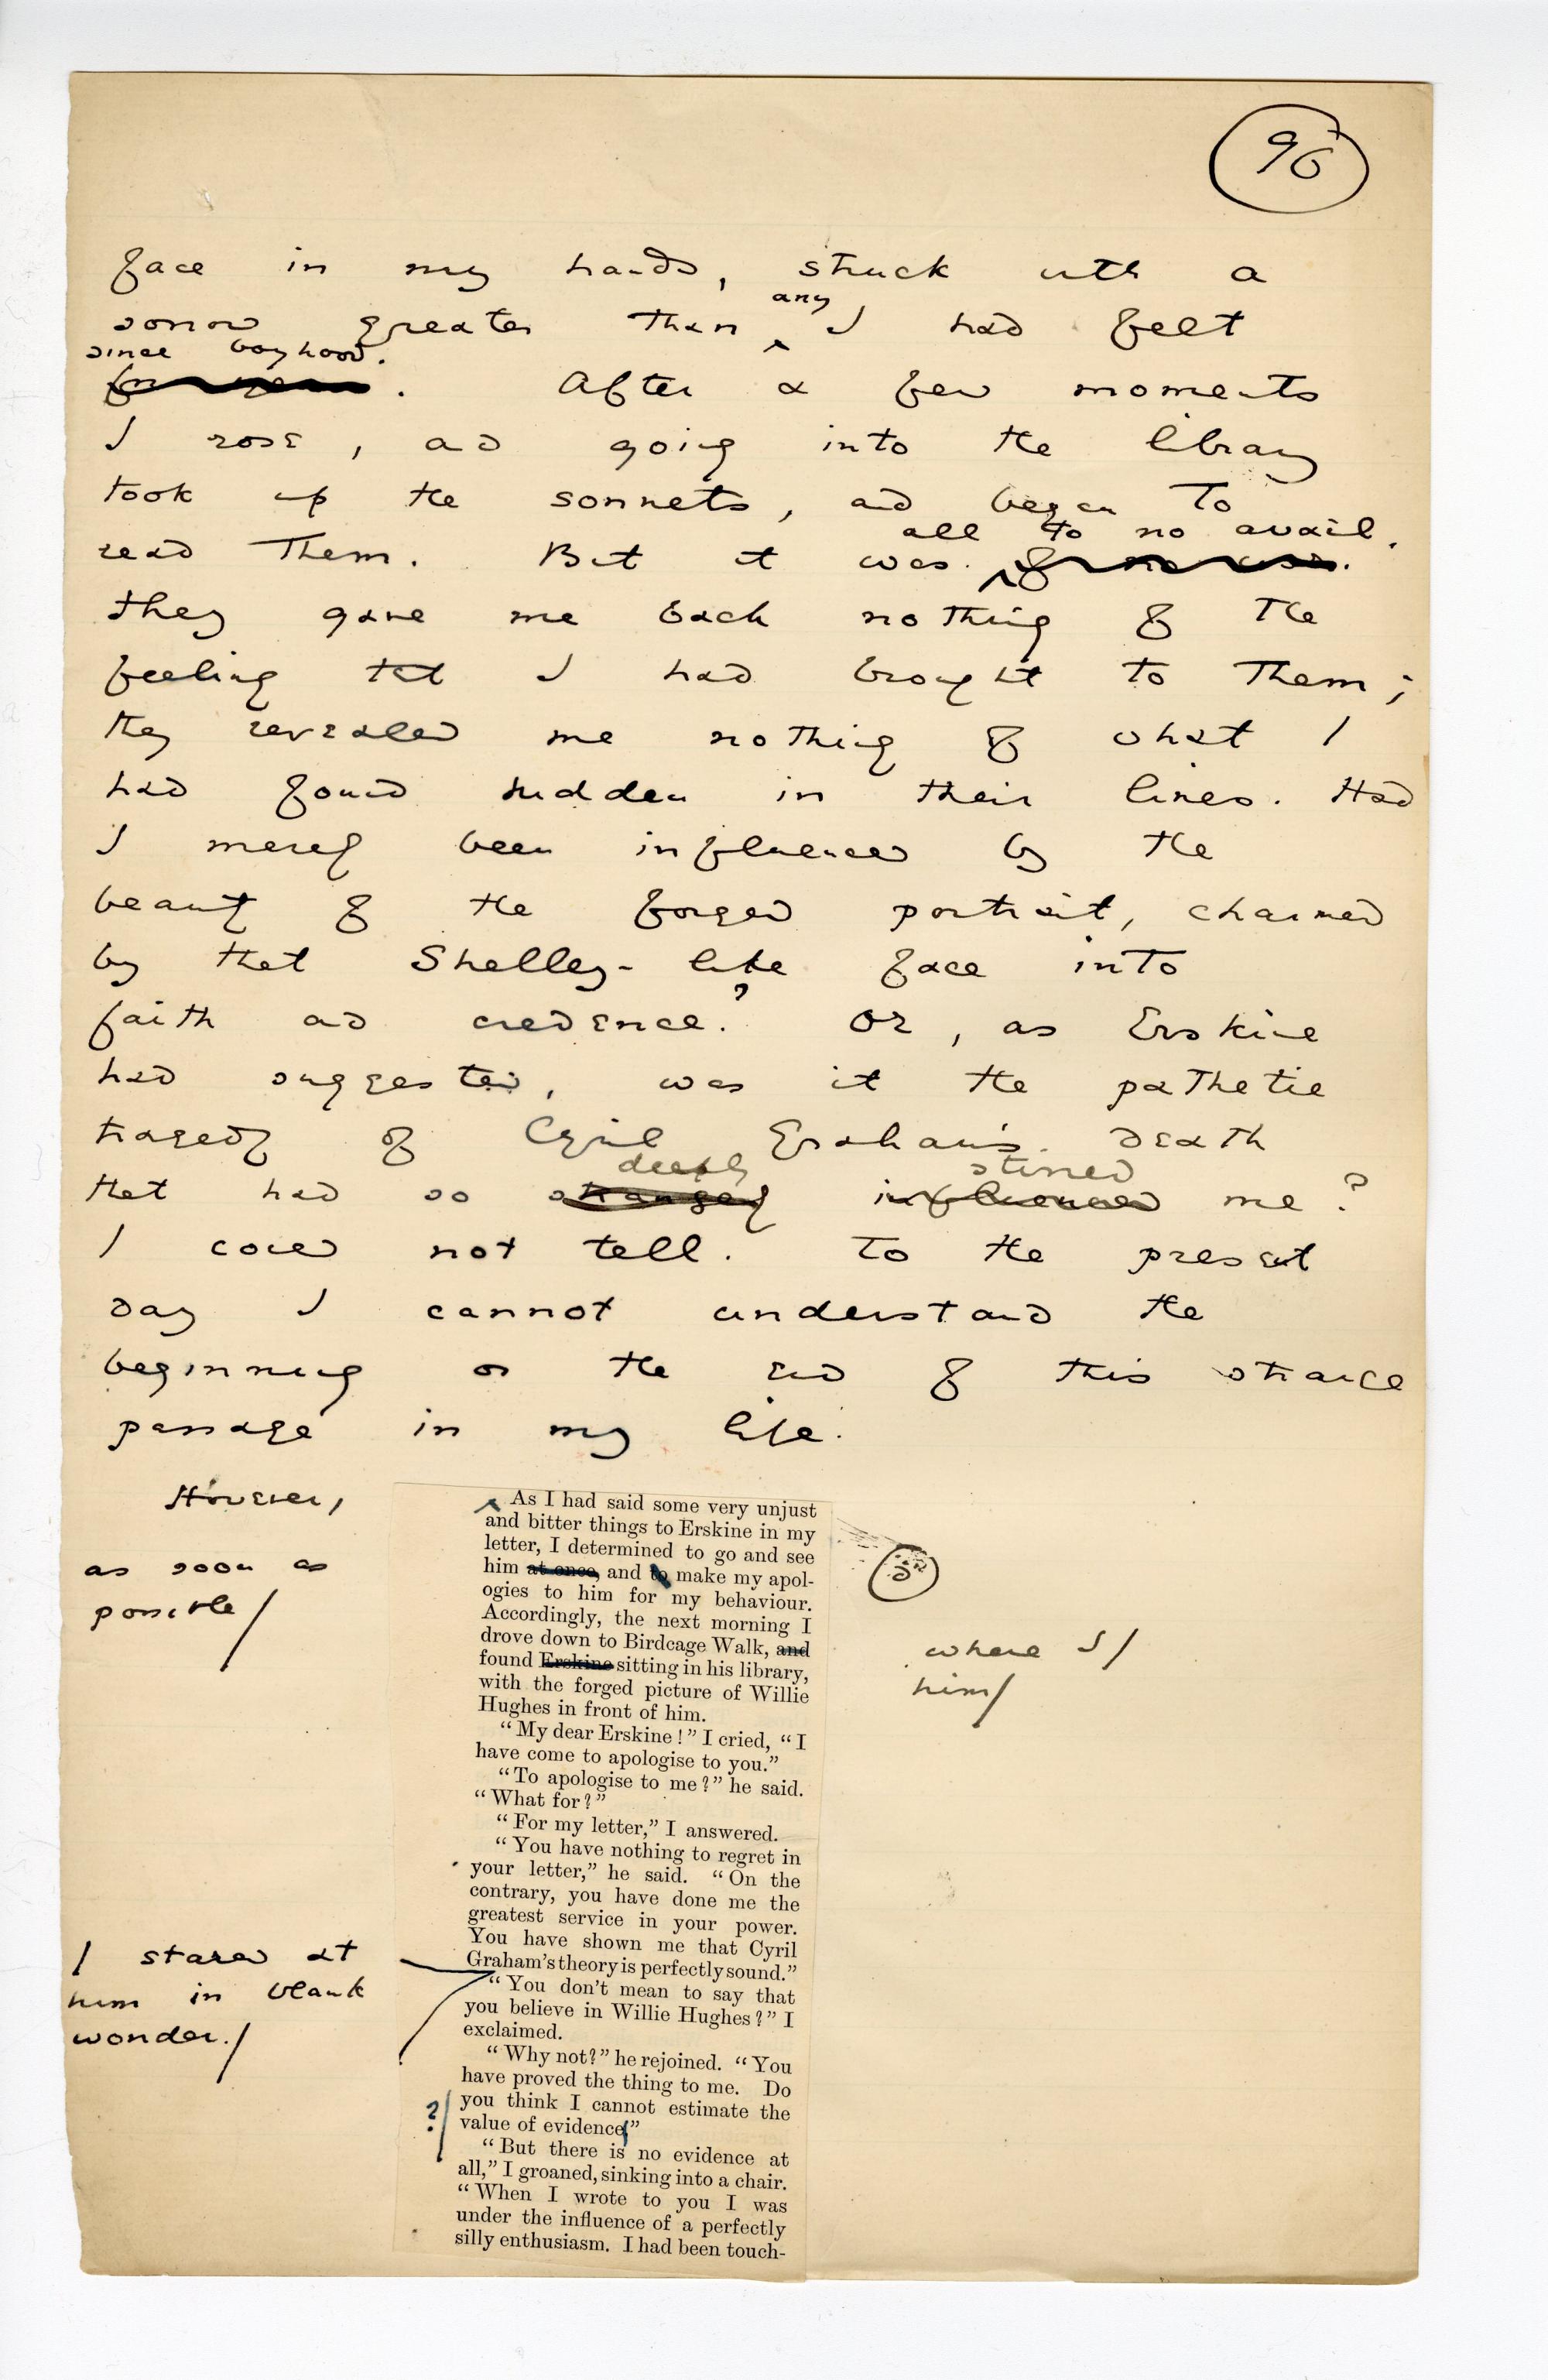 96
face in my hands, struck with a
any
sorrow greater than ‸ I had felt
since boyhood.
for years. After a few moments
I rose, and going into the library
took up the sonnets, and began to
all to no avail.
read them. But it was ‸ of no use.
They gave me back nothing of the
feeling that I had brought to them;
they revealed me nothing of what I
had found hidden in their lines. Had
I merely been influenced by the
beauty of the forged portrait, charmed
by that Shelley-like face into
faith and credence? Or, as Erskine
had suggested, was it the pathetic
tragedy of Cyril Graham's death
deeply stirred
that had so strangely influenced me?
I could not tell. To the present
day I cannot understand the
beginning or the end of this strange
passage in my life.
However,
as soon as
possible/
As I had said some very unjust
and bitter things to Erskine in my
letter, I determined to go and see
him at once, and to make my apol-
ogies to him for my behaviour.
Accordingly, the next morning I
drove down to Birdcage Walk, and
found Erskine sitting in his library,
with the forged picture of Willie
Hughes in front of him.
where I/
him/
“My dear Erskine!” I cried, “I
have come to apologise to you.”
“To apologise to me?” he said.
“What for?”
“For my letter,” I answered.
“You have nothing to regret in
your letter,” he said. “On the
contrary, you have done me the
greatest service in your power.
You have shown me that Cyril
Graham's theory is perfectly sound.”
I stared at
him in blank
wonder./
“You don't mean to say that
you believe in Willie Hughes?” I
exclaimed.
“Why not?” he rejoined. “You
have proved the thing to me. Do
you think I cannot estimate the
value of evidence”
?/
“But there is no evidence at
all,” I groaned, sinking into a chair.
“When I wrote to you I was
under the influence of a perfectly
silly enthusiasm. I had been touch-